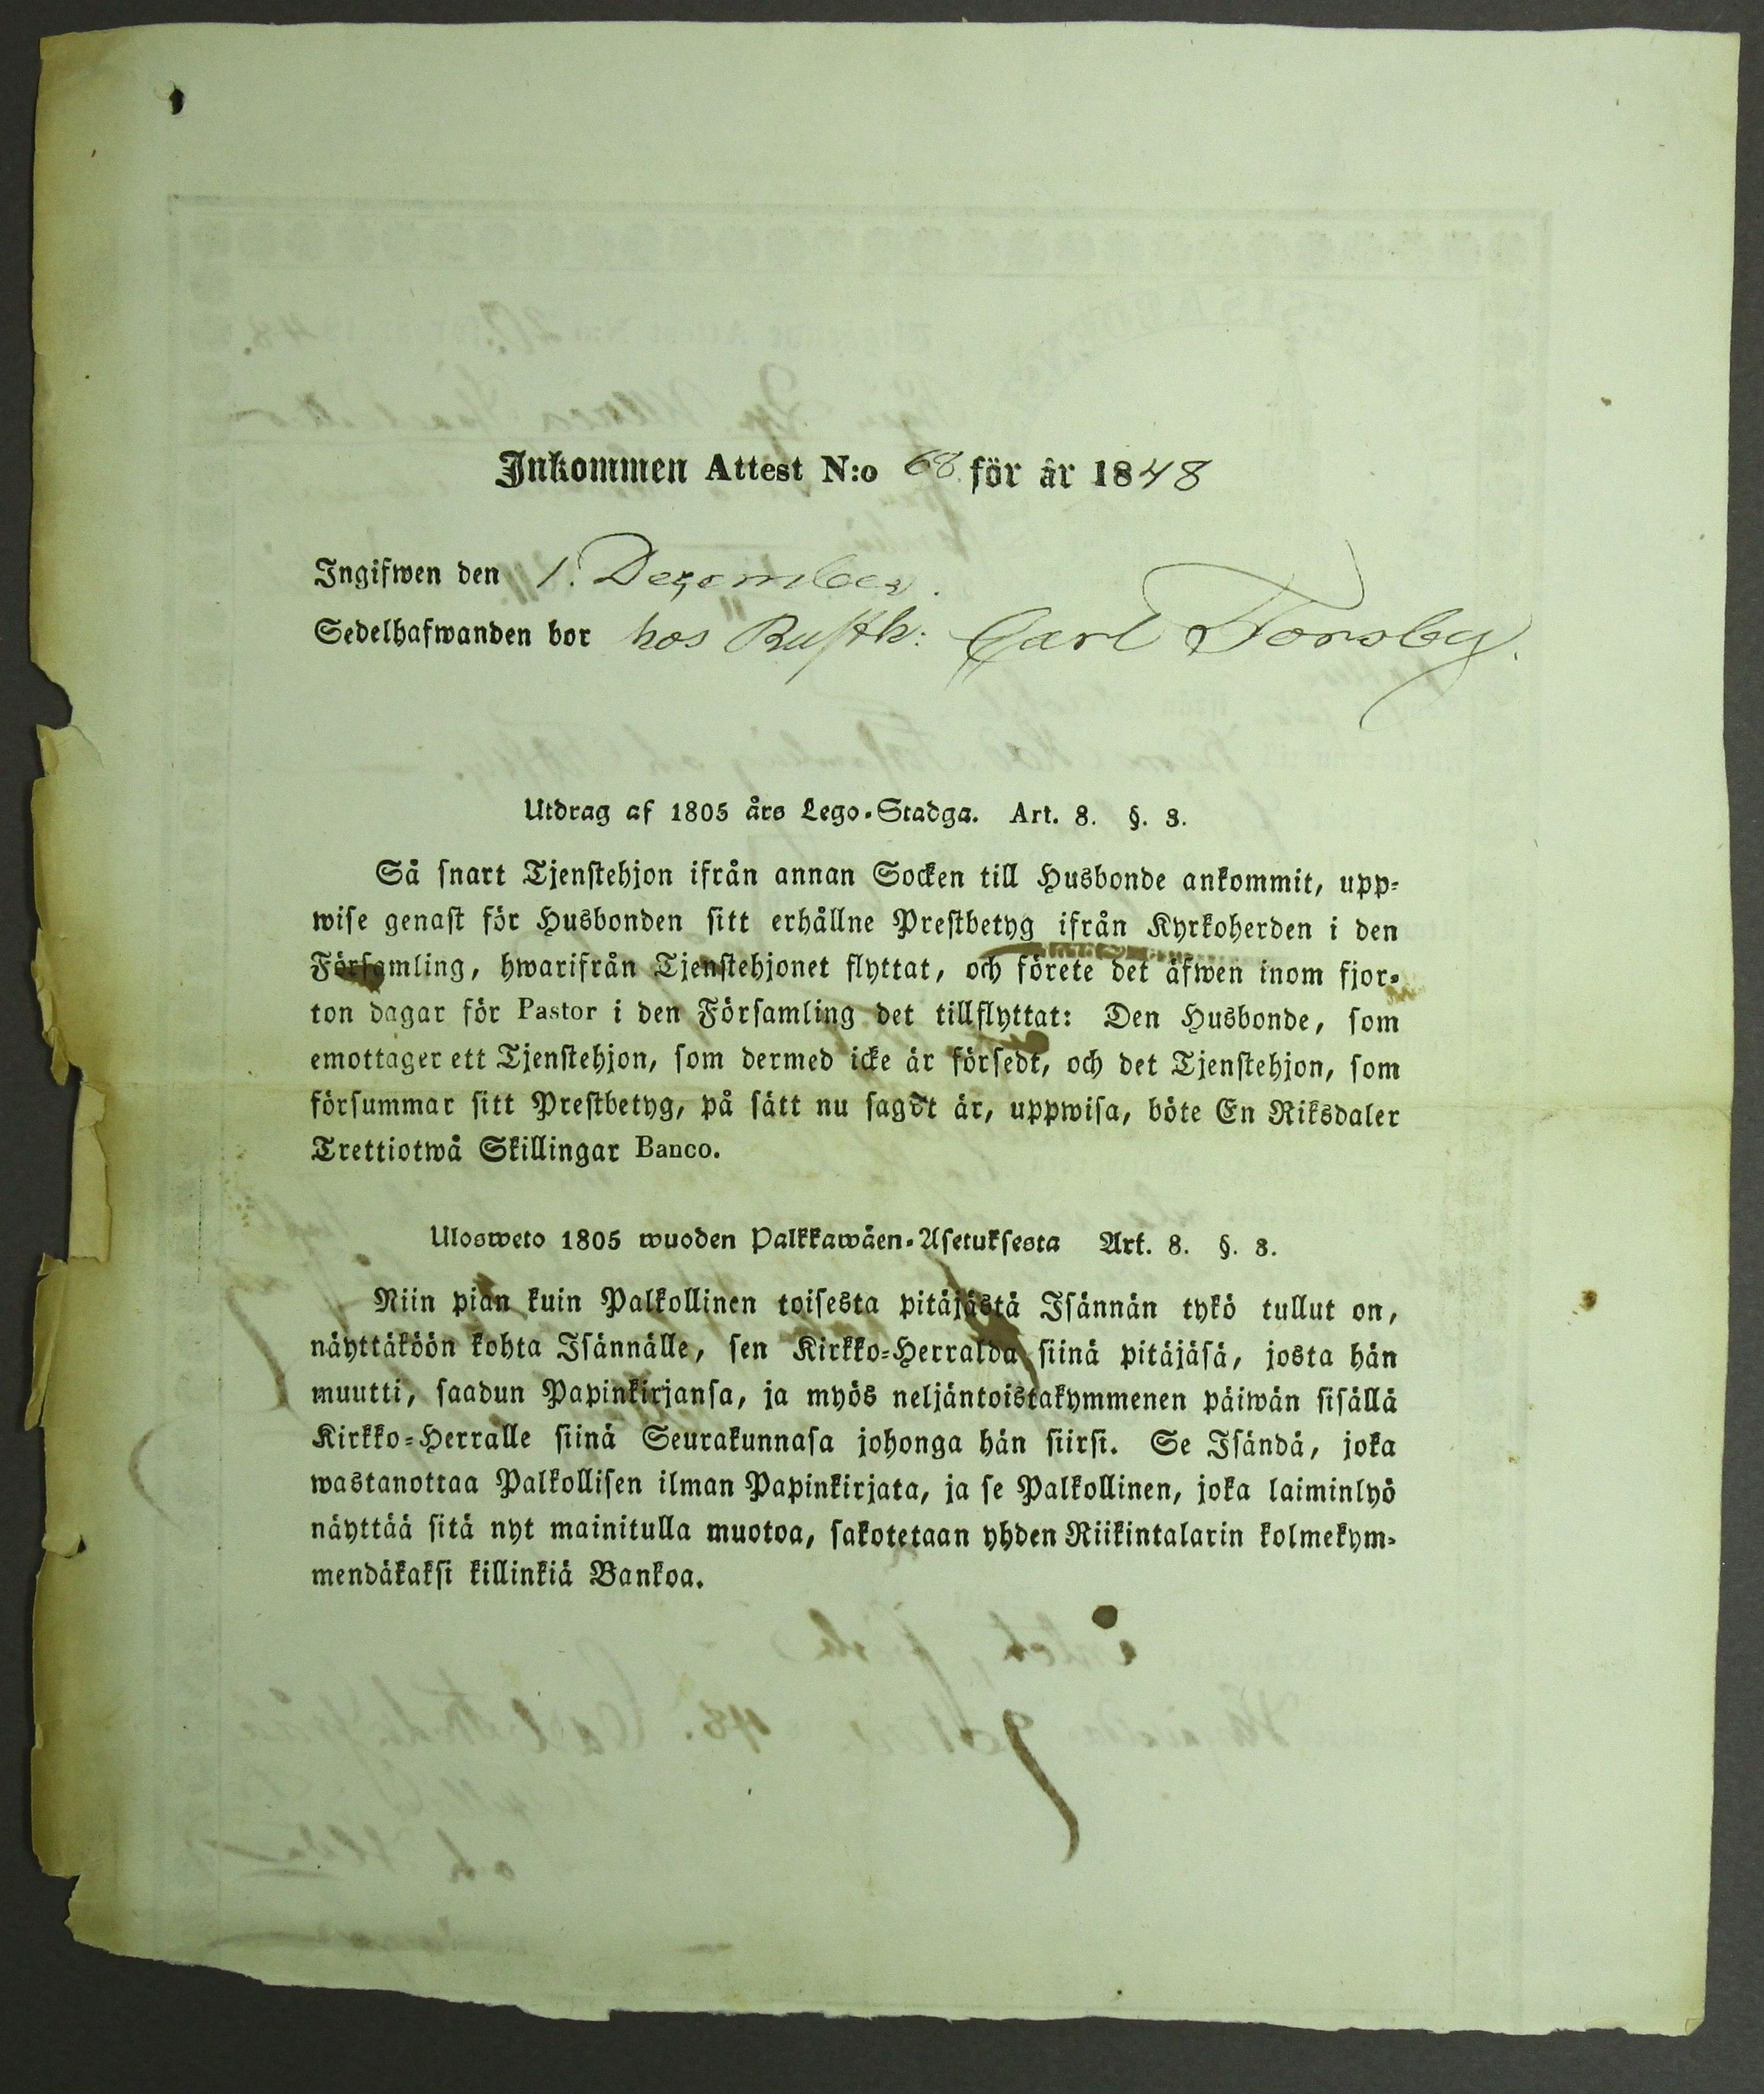 Inkommen Attest N:o 68 för år 1848
Ingifwen den 1. December.
Sedelhafwanden bor hos Rusth: Carl Forsby.
Utdrag af 1805 års Lego-Stadga. Art. 8. §. 3.
Så snart Tjenstehjon ifrån annan Socken till Husbonde ankommit, upp-
wise genast för Husbonden sitt erhållne Prestbetyg ifrån Kyrkoherden i den
Församling, hwarifrån Tjenstehjonet flyttat, och förete det äfwen inom fjor-
ton dagar för Pastor i den Församling det tillflyttat: Den Husbonde, som
emottager ett Tjenstehjon, som dermed icke är försedt, och det Tjenstehjon, som
försummar sitt Prestbetyg, på sätt nu sagdt är, uppwisa, böte En Riksdaler
Trettiotwå Skillingar Banco.
Ulosweto 1805 wuoden Palkkawäen-Asetuksesta Art. 8. §. 3.
Niin pian kuin Palkollinen toisesta pitäjästä Isännän tykö tullut on,
näyttäköön kohta Isännälle, sen Kirkko-Herralda siinä pitäjäsä, josta hän
muutti, saadun Papinkirjansa, ja myös neljäntoistakymmenen päiwän sisällä
Kirkko-Herralle siinä Seurakunnasa johonga hän siirsi. Se Isändä, joka
wastanottaa Palkollisen ilman Papinkirjata, ja se Palkollinen, joka laiminlyö
näyttää sitä nyt mainitulla muotoa, sakotetaan yhden Riikintalarin kolmekym-
mendäkaksi killinkiä Bankoa.